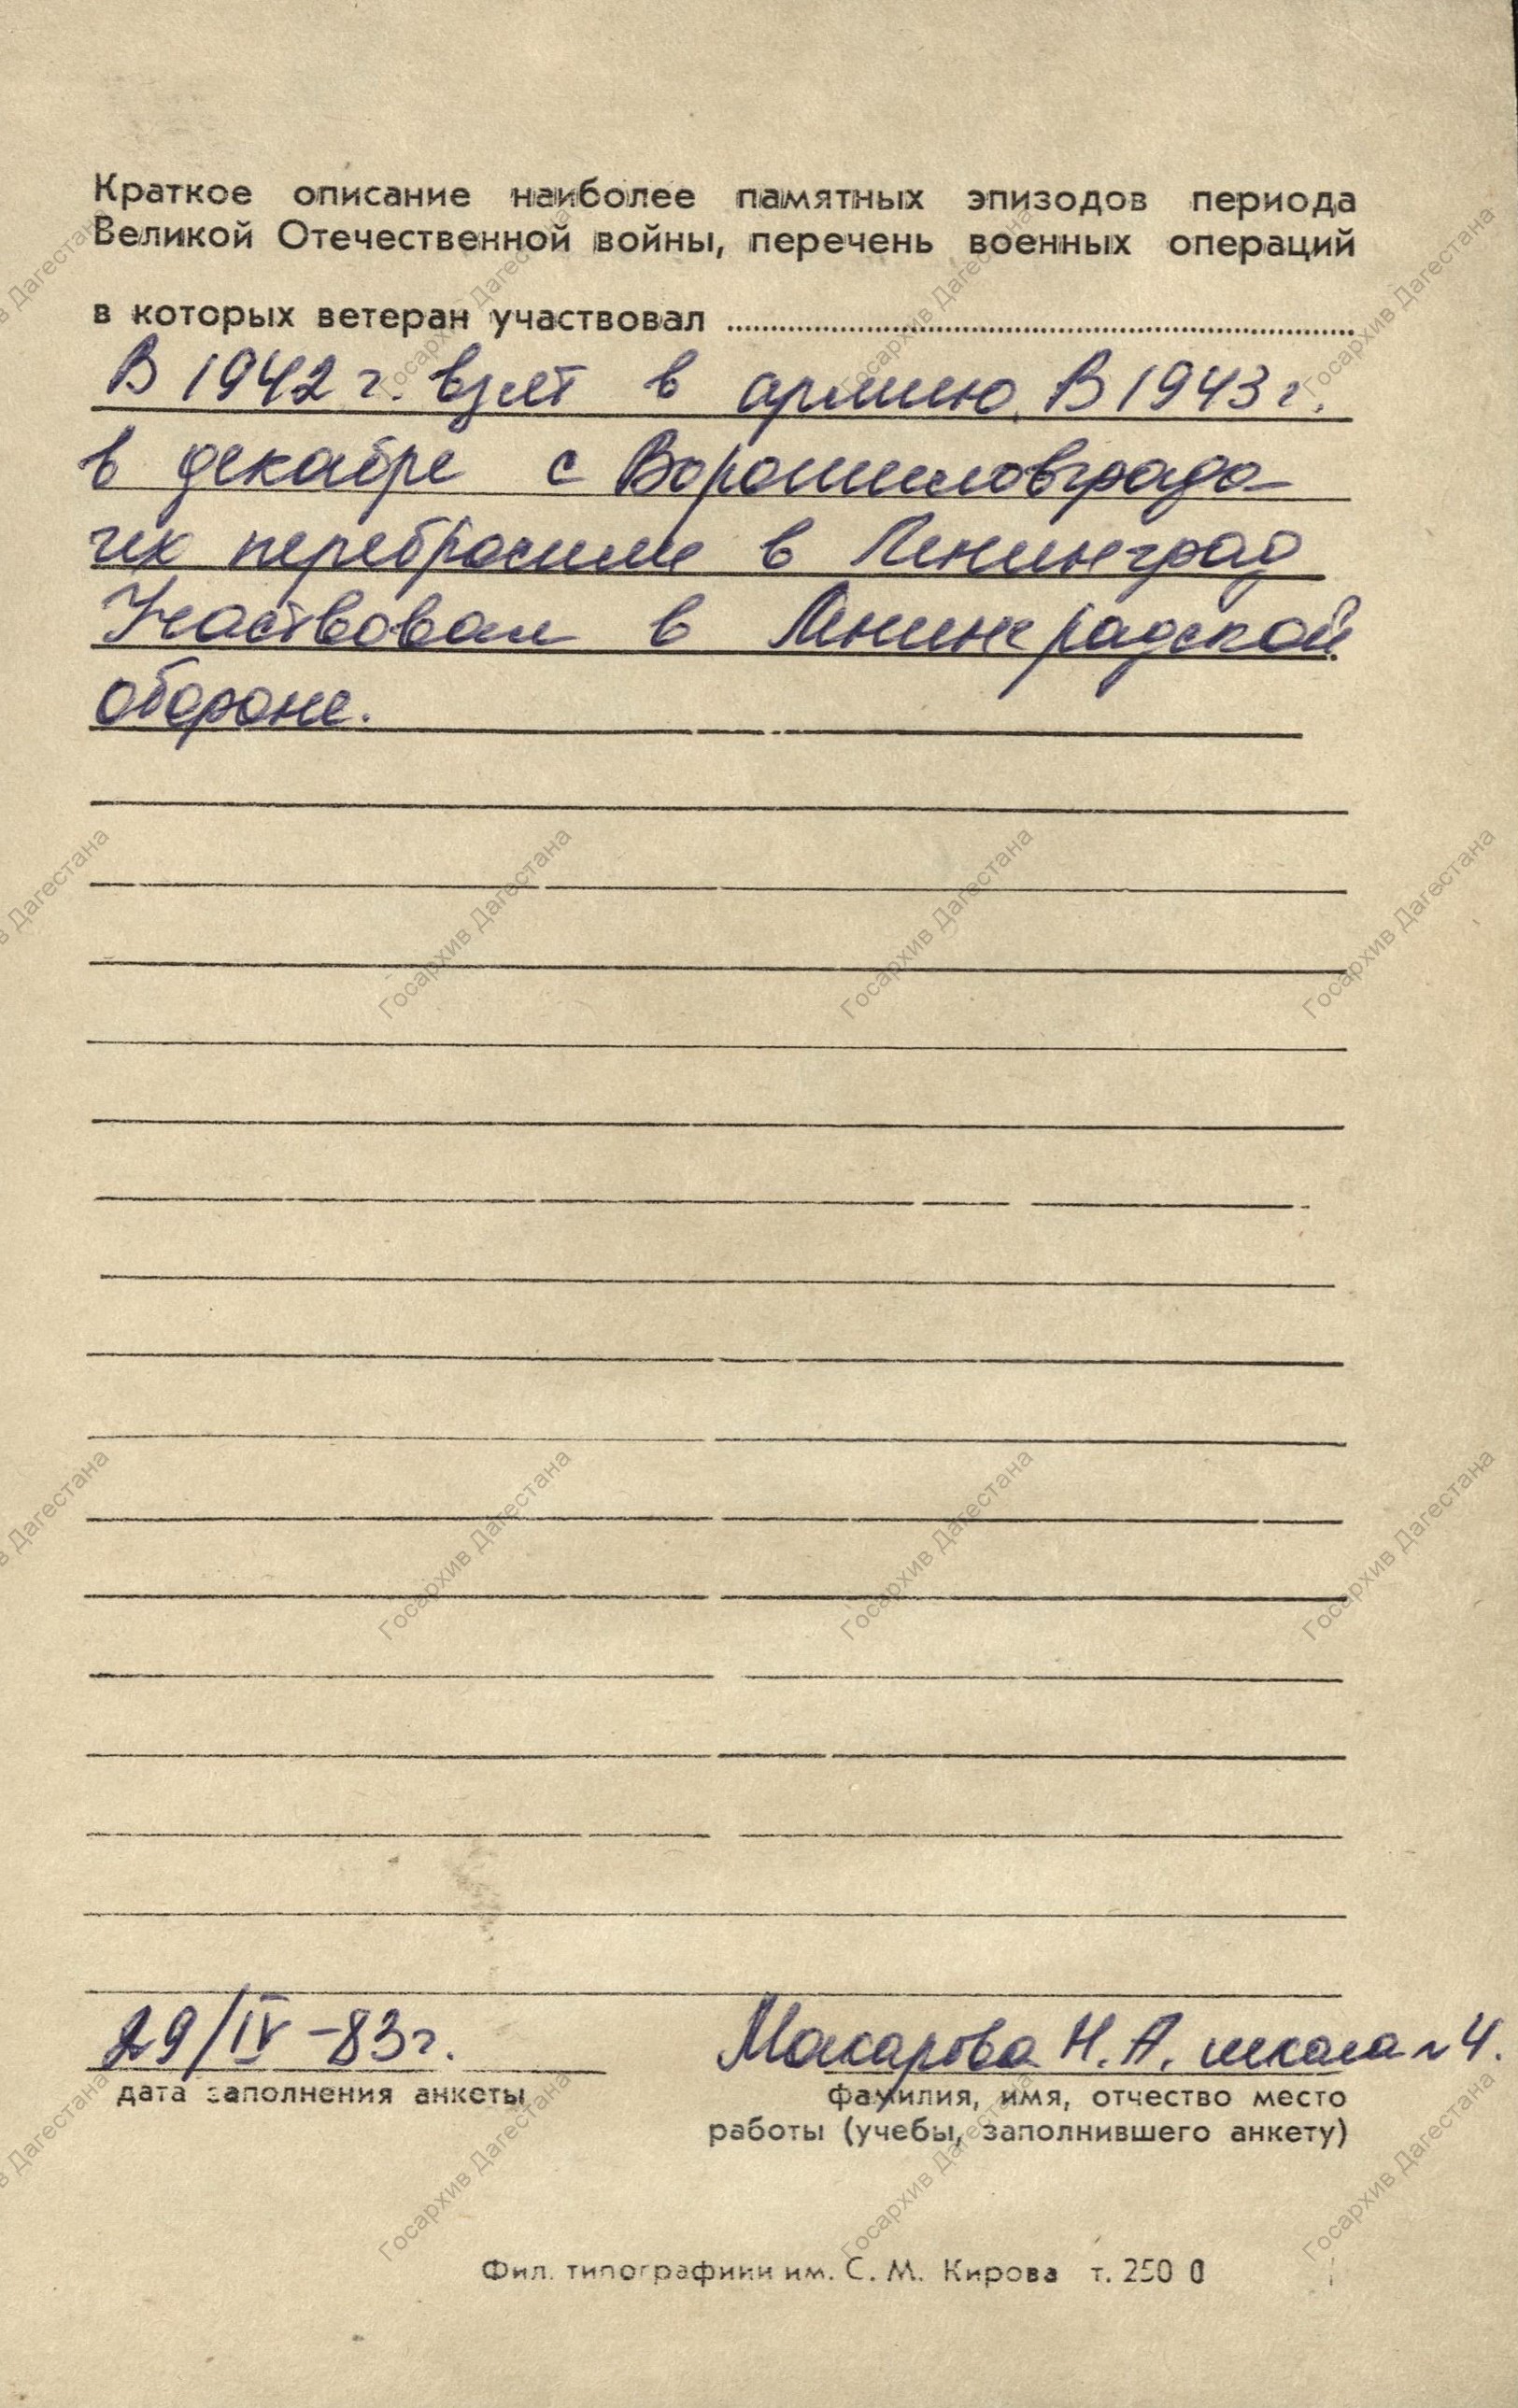 Краткое описание наиболее памятных эпизодов периода
Великой Отечественной войны, перечень военных операций
в которых ветеран участвовал
В 1942 г. взят в армию. В 1943 г.
в декабре с Ворошиловграда
их перебросили в Ленинград
Участвовал в Ленинградской
обороне.
29/IV-83г.
Макарова Н.А. школа №4.
дата заполнения анкеты
фамилия, имя, отчество место
работы (учебы, заполнившего анкету)
Фил. типографиии им. С. М. Кирова т. 250 0
Госархив Дагестана